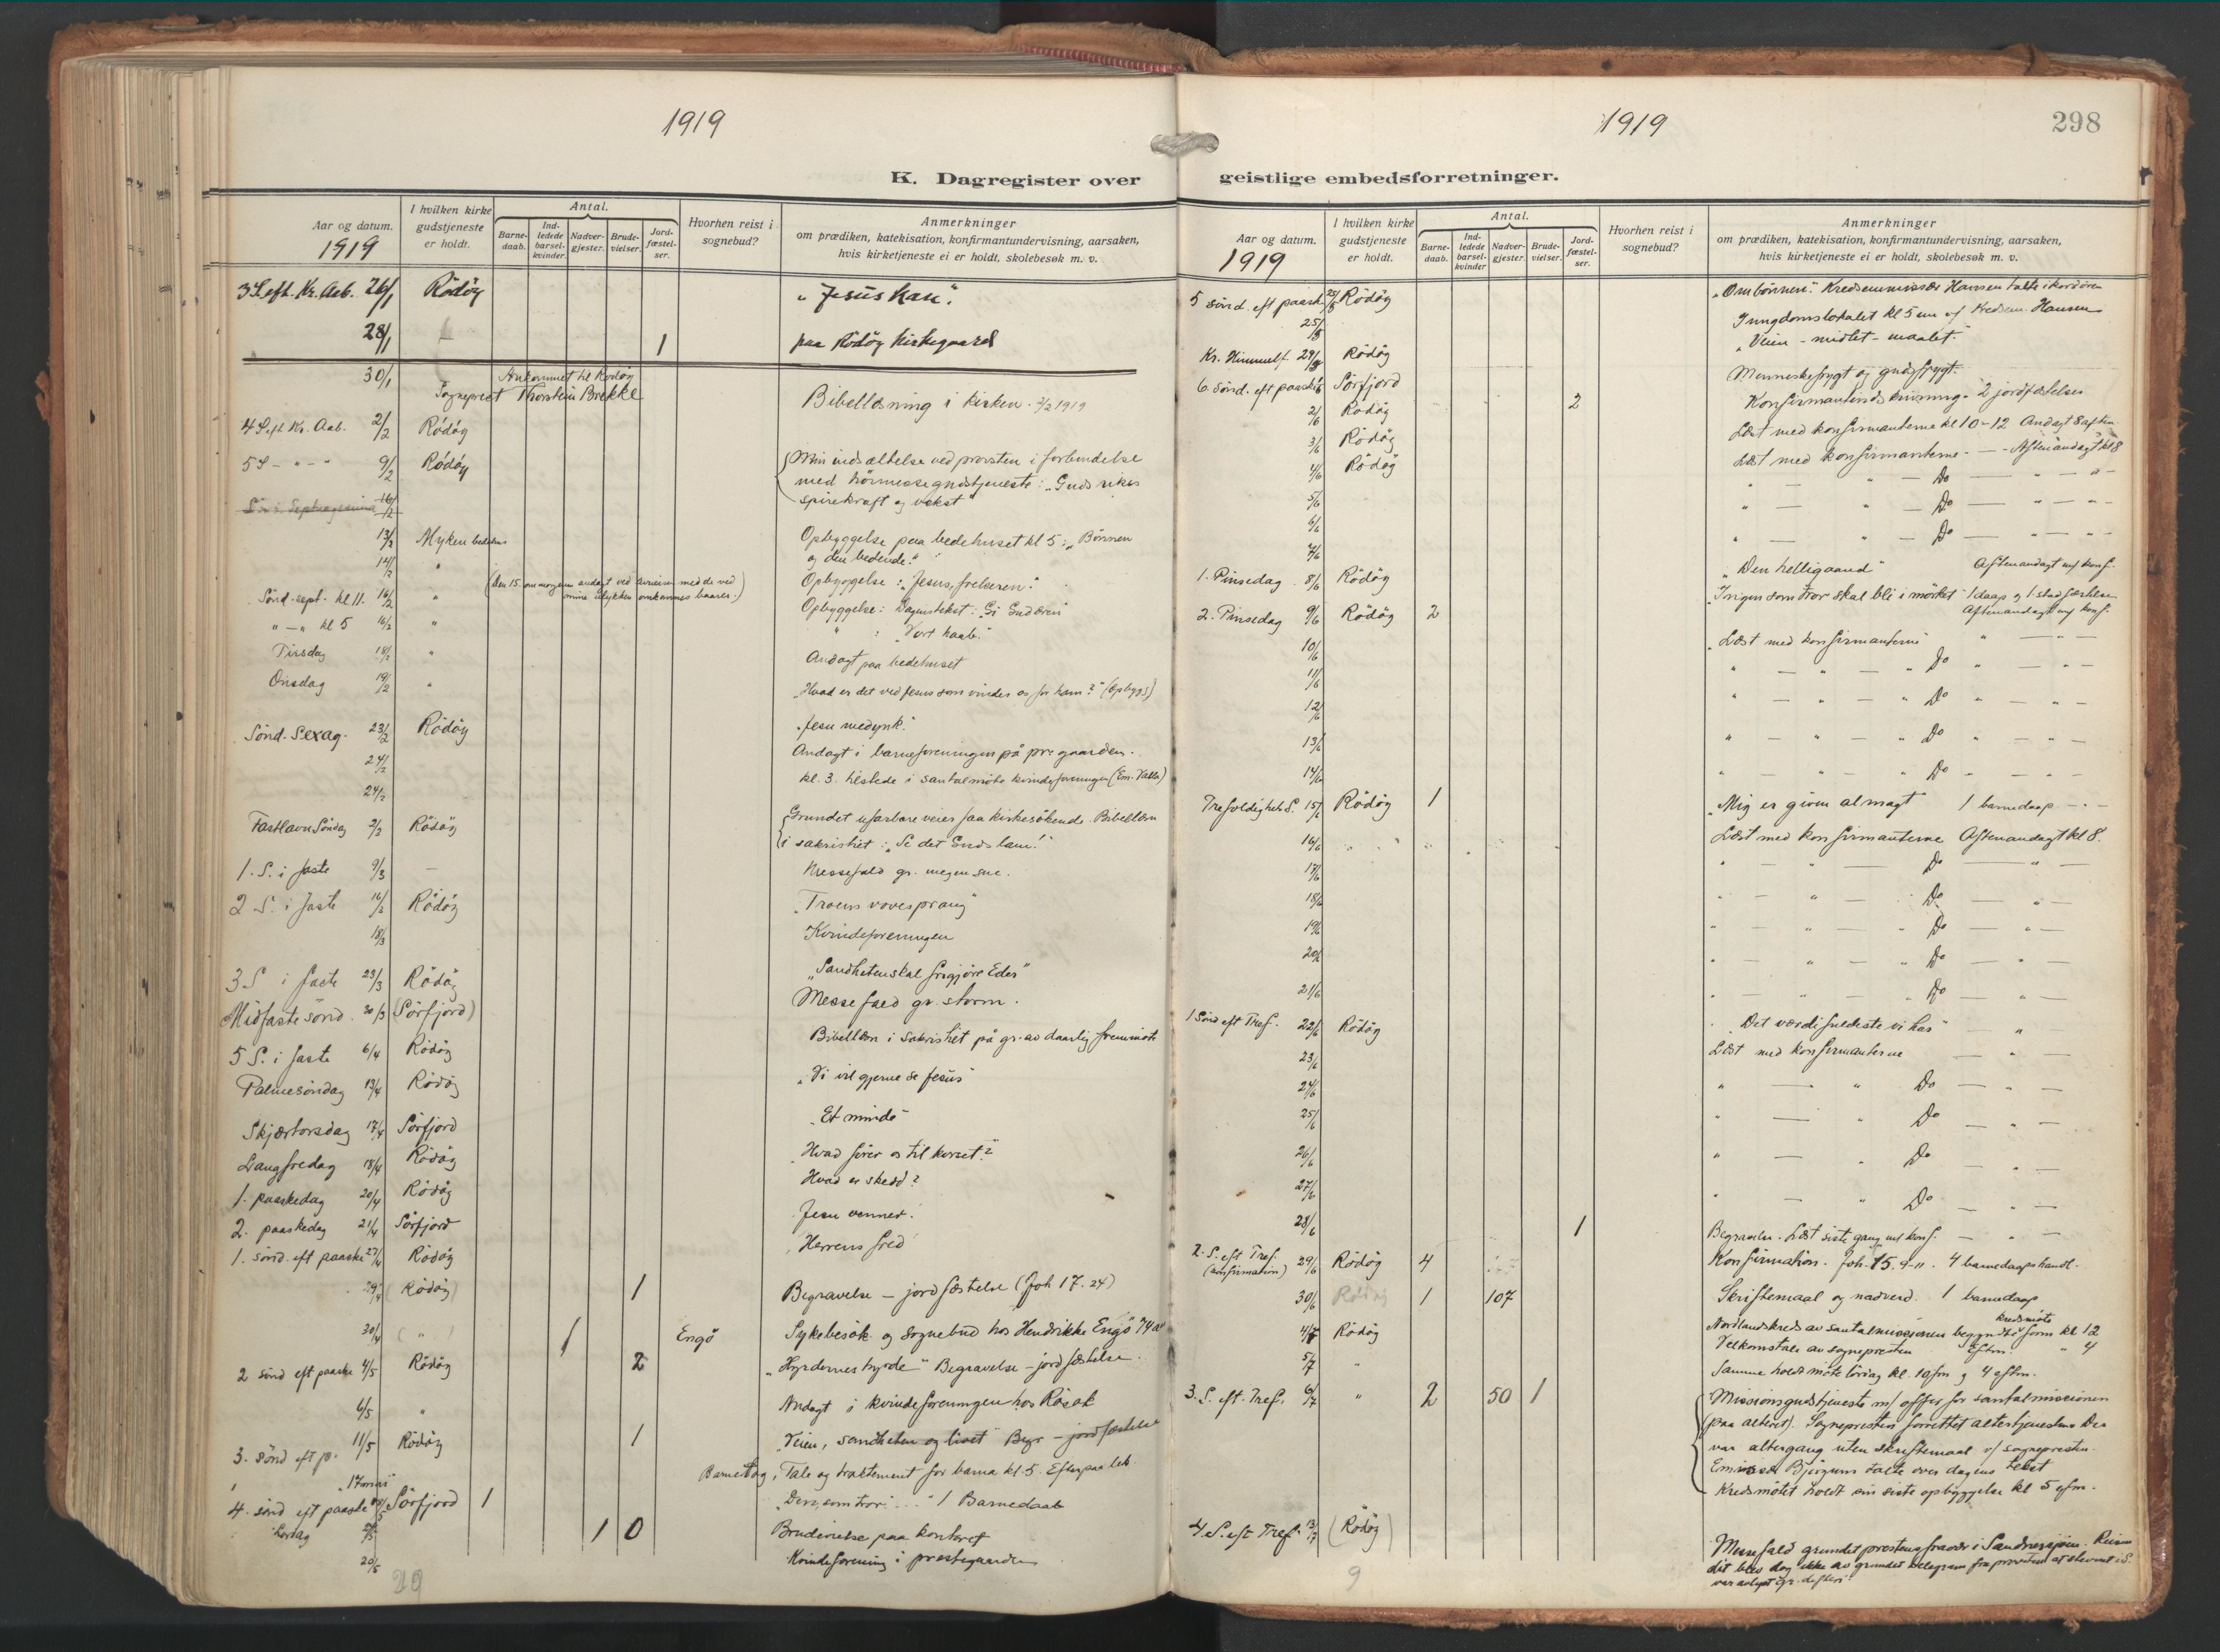 1919
K. Dagregister over
Aar og datum.
1919
I hvilken kirke gudstjeneste er holdt.
Antal.
Barne-daab.
Ind-ledede barsel-kvinder.
Nadver-gjester.
Brude-vielser.
Jord-fæstel-ser.
Hvorhen reist i sognebud?
Anmerkninger
om prædiken, katekisation, konfirmantundervisning, aarsaken,
hvis kirketjeneste ei er holdt, skolebesøk m. v.
3 S. eft. Kr. Aab. 26/1 Rödöy "Jesus kan".
28/1 1 paa Rödöy kirkegaard
30/1 Ankommet til Rödöy
Sogneprest Thorstein Brekke
Bibellæsning i kirken 2/2 1919
4 S. eft Kr. Aab. 2/2 Rödöy
5 S - " - " 9/2 Rödöy Min indsættelse ved provsten i forbindelse
med höimessegudstjeneste: "Guds rikes
spirekraft og vekst"
Septuagesima 16/2
13/2 Myken bedehus Opbyggelse paa bedehuset kl 5: "Bönnen
og den bedende."
14/2 " Opbyggelse: "Jesus, frelseren."
Sönd. sept. kl 11. 16/2 " Opbyggelse: Dagens tekst:
" - " kl 5 16/2 " " : "Vort haab."
Tirsdag 18/2 " Andagt paa bedehuset
Onsdag 19/2 " "Hvad er det ved Jesus som vinder os for ham?" (Opbygg)
Sönd. Sexag. 23/2 Rödöy "Jesu medynk."
24/2 Andagt i barneforeningen på pr. gaarden.
24/2 kl. 3. tilstede i santalmöte kvindeforeningen
Fastlavnsöndag 2/3 Rödöy Grundet ufarbare veier faa kirkesökende. Bibellæsn
i sakristiet: "Se det Guds lam!"
1. S. i faste 9/3 — Messefald gr. megen sne.
2 S. i faste 16/3 Rödöy "Troens vovesprang"
18/3 Kvindeforeningen
3 S i faste 23/3 Rödöy "Sandheten skal frigjöre Eder"
Midfaste sönd. 30/3 (Sörfjord) Messefald gr. storm.
5 S. i faste 6/4 Rödöy Bibellæsn i sakristiet på gr. av daarlig fremmöte
Palmesöndag 13/4 Rödöy "Vi vil gjerne se Jesus"
Skjærtorsdag 17/4 Sörfjord "Et minde"
Langfredag 18/4 Rödöy "Hvad förer os til korset?"
1. paaskedag 20/4 Rödöy Hvad er skedd?
2. paaskedag 21/4 Sörfjord Jesu venner.
1. sönd. eft paaske 27/4 Rödöy "Herrens fred"
29/4 (Rödöy) 1 Begravelse — jordfæstelse (Joh 17. 24)
30/4 ( " ) 1 Engö Sykebesök og sognebud hos Hendrikke Engö 74 aar
2 sönd eft paaske 4/5 Rödöy 2 "Hyrdernes hyrde" Begravelse – jordfæstelse.
6/5 " Andagt i kvindeforeningen hos
3. sönd eft p. 11/5 Rödöy 1 "Veien, sandheten og livet" Begr – jordfæstelse
"17 mai" Barnetog, Tale og traktement for barna kl. 5. Efterpaa lek
4. sönd eft paaske Sörfjord 1 "Den, som tror ..." 1 Barnedaab
Lördag 1 0 Brudevielse paa kontoret
20/5 Kvindeforening i prestegaarden
1919
298
geistlige embedsforretninger.
Aar og datum.
1919
I hvilken kirke gudstjeneste er holdt.
Antal.
Barne-daab.
Ind-ledede barsel-kvinder
Nadver-gjester.
Brude-vielser.
Jord-fæstel-ser.
Hvorhen reist i sognebud?
Anmerkninger
om prædiken, katekisation, konfirmantundervisning, aarsaken,
hvis kirketjeneste ei er holdt, skolebesøk m. v.
5 sönd. eft paaske 25/5 Rödöy "Om bönnen". Kredsemissær Hansen talte i kordören
25/5 I ungdomslokalet kl 5 em Hansen
"Veien – midlet – maalet."
Kr. Himmelf. 29/5 Rödöy Menneskefrygt og gudsfrygt.
6. sönd. eft paaske Sörfjord 2 Konfirmantindskrivning. 2 jordfæstelser
2/6 Rödöy Læst med konfirmanterne kl 10–12 Andagt 8 aften
3/6 Rödöy Læst med konfirmanterne — Aftenandagt kl 8
4/6 Rödöy " — " — Do — " — " —
5/6 " — " — Do — " — " —
6/6 " — " — Do — " — " —
7/6
1. Pinsedag 8/6 Rödöy "Den helligaand" Aftenandagt m/ konf.
2. Pinsedag 9/6 Rödöy 2 "Ingen som tror skal bli i mörket" 1 daap og 1 stadfæstelse
Aftenandagt m/ konf.
10/6 Læst med konfirmanterne " — " —
11/6 " — " — " Do " — " —
12/6 " — " — " Do " — " —
13/6 " — " — " Do " — " —
14/6 " — " — " Do " — " —
Trefoldighets S. 15/6 Rödöy 1 "Mig er given al magt 1 barnedaap — " —
16/6 Læst med konfirmanterne Aftenandagt kl 8.
17/6 " — " — Do — " —
18/6 " — " — Do — " —
19/6 " — " — Do — " —
20/6 " — " — Do — " —
21/6 " — " — Do — " —
1 Sönd eft Tref. 22/6 Rödöy "Det værdifuldeste vi har" "
23/6 Læst med konfirmanterne — " —
24/6 " — " Do — " —
25/6 " — " Do — " —
26/6 " — " Do — " —
27/6 " — " Do — " —
28/6 1 Begravelse. Læst siste gang m/ konf. — " —
2. S. eft Tref. (konfirmation) 29/6 Rödöy 4 Konfirmation. Joh. 15. 9-11. 4 barnedaapshandl.
30/6 Rödöy 1 107 Skriftemaal og nadverd. 1 barnedaap
4/7 Rödöy Nordlandskreds av santalmissionen begyndte kredsmöte form kl 12
Velkomstale av sognepresten Eftm. " 4
5/7 " Samme holdt möte lördag kl. 10 fm og 4 eftm.
3. S. eft. Tref. 6/7 " 2 50 1 Missionsgudstjeneste m/ offer for santalmissionen
(paa alteret). Sognepresten forrettet altertjenesten. Der
var altergang uten skriftemaal v/ sognepresten.
Emissær talte over dagens tekst
Kredsmötet holdt sin siste opbyggelse kl 5 efm.
4. S. eft Tref. 13/7 (Rödöy) Messefald grundet prestens fravær i Sandnessjöen. Reisen
dit blev dog ikke av grundet telegram fra provsten at stevnet i S.
var avlyst
29
9